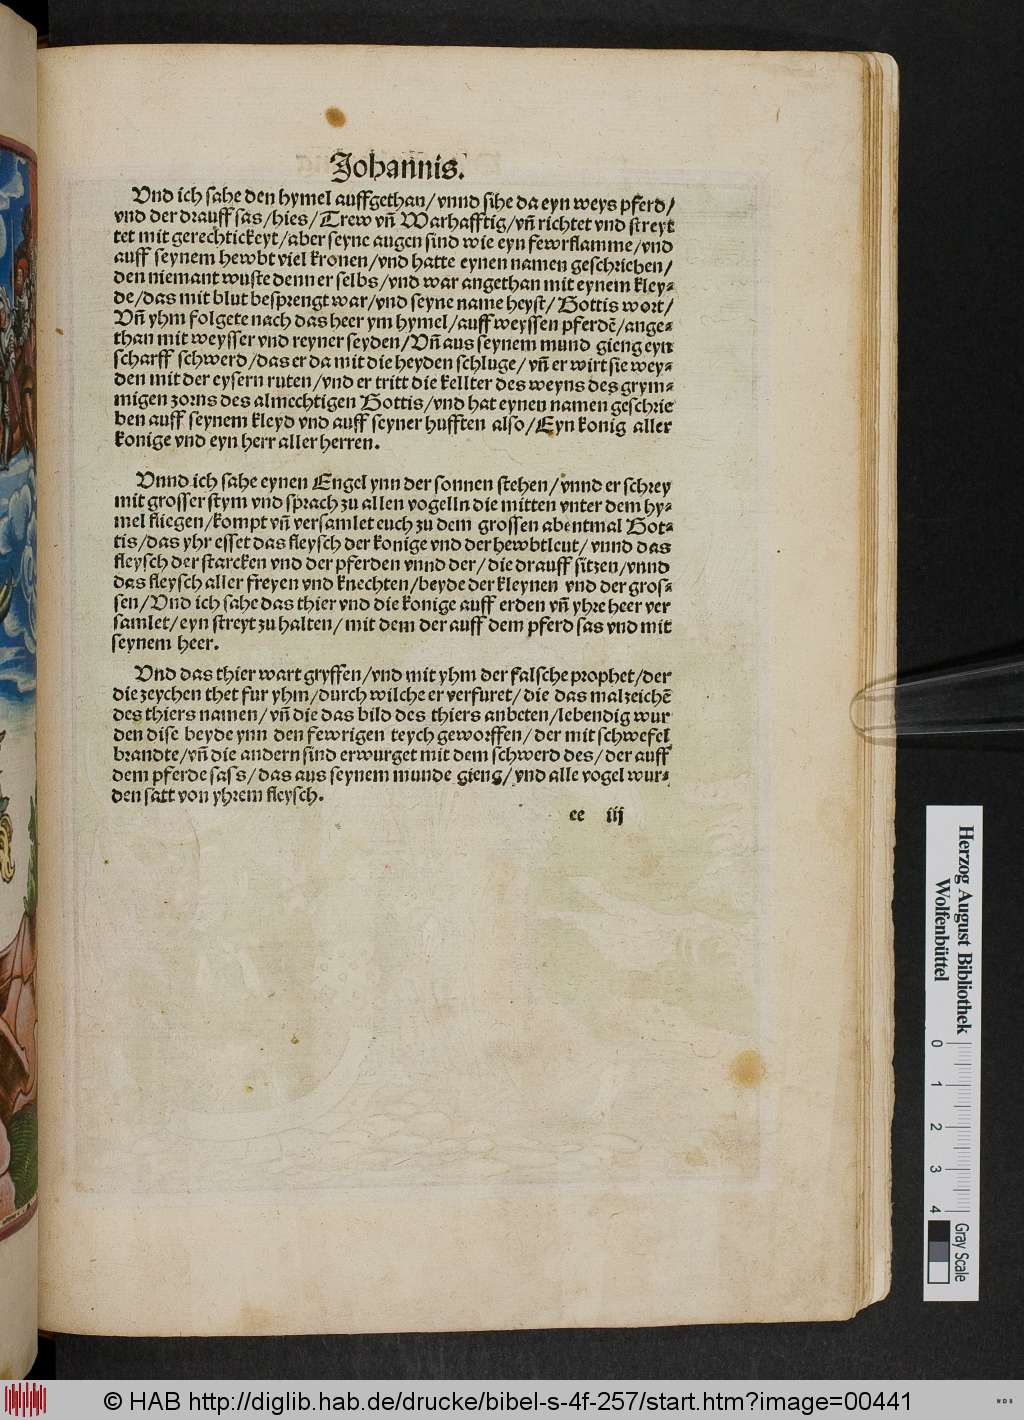 Johannis.
Und ich sahe den hymel auffgethan/ vnnd sihe da eyn weys pferd/
vnd der drauff sas/hies/Trew vñ Warhafftig/vñ richtet vnd streyt
tet mit gerechtickeyt/aber seyne augen sind wie eyn fewrflamme/vnd
auff seynem hewbt viel kronen/vnd hatte eynen namen geschrieben/
den niemant wuste denn er selbs/vnd war angethan mit eynem kley-
de/das mit blut besprengt war/vnd seyne name heyst/Gottis wort/
Vñ yhm folgete nach das heer ym hymel/auff weyssen pferdẽ/ange-
than mit weysser vnd reyner seyden/Vñ aus seynem mund gieng eyn
scharff schwerd/das er da mit die heyden schluge/vñ er wirt sie wey-
den mit der eysern ruten/vnd er tritt die kellter des weyns des grym-
migen zorns des almechtigen Gottis/vnd hat eynen namen geschrie
ben auff seynem kleyd vnd auff seyner hufften also/Eyn konig aller
konige vnd eyn herr aller herren.
Vnnd ich sahe eynen Engel ynn der sonnen stehen/vnnd er schrey
mit grosser stym vnd sprach zu allen vogelln die mitten vnter dem hy-
mel fliegen/kompt vñ versamlet euch zu dem grossen abentmal Got-
tis/das yhr esset das fleysch der konige vnd der hewbtleut/ vnnd das
fleysch der starcken vnd der pferden vnnd der/die drauff sitzen/vnnd
das fleysch aller freyen vnd knechten/beyde der kleynen vnd der gros-
sen/Vnd ich sahe das thier vnd die konige auff erden vñ yhre heer ver
samlet/eyn streyt zu halten/mit dem der auff dem pferd sas vnd mit
seynem heer.
Vnd das thier wart gryffen/vnd mit yhm der falsche prophet/der
die zeychen thet fur yhm/durch wilche er verfuret/die das malzeichẽ
des thiers namen/vñ die das bild des thiers anbeten/lebendig wur
den dise beyde ynn den fewrigen teych geworffen/der mit schwefel
brandte/vñ die andern sind erwurget mit dem schwerd des/der auff
dem pferde sass/das aus seynem munde gieng/vnd alle vogel wur-
den satt von yhrem fleysch.
ee iij
Herzog August Bibliothek
Wolfenbüttel
0 1 2 3 4
Gray Scale
© HAB http://diglib.hab.de/drucke/bibel-s-4f-257/start.htm?image=00441